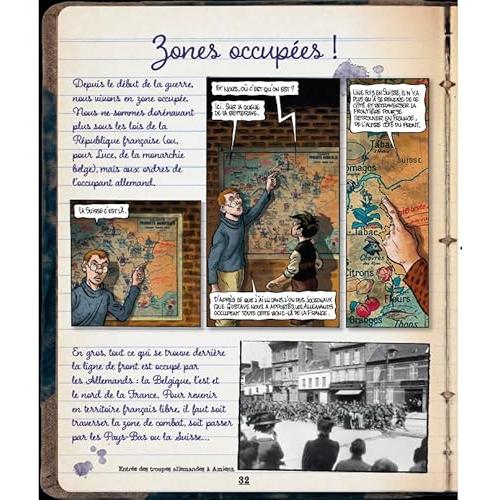 Zones occupées !
Depuis le début de la guerre,
nous vivons en zone occupée.
Nous ne sommes dorénavant
plus sous les lois de la
République française (ou,
pour Luce, de la monarchie
belge), mais aux ordres de
l'occupant allemand.
LA SUISSE C'EST LÀ.
ET NOUS, OÙ C'EST QU'ON EST ?
ICI. SUR LA QUEUE
DE LA BETTERAVE.
D'APRÈS CE QUE J'AI LU DANS L'UN DES JOURNAUX
QUE GUSTAVE NOUS A APPORTÉS, LES ALLEMANDS
OCCUPENT TOUTE CETTE
DE LA FRANCE.
UNE FOIS EN SUISSE, IL N'Y A
PLUS QU'À SE RENDRE DE CE
CÔTÉ ET RETRAVERSER LA
FRONTIÈRE POUR SE
RETROUVER EN FRANCE,
DE L'AUTRE CÔTÉ DU FRONT.
Taba
SUISSE
omages
Tabac
Chèvres
Citrons
Fleurs
Oranges
Thons
En gros, tout ce qui se trouve derrière
la ligne de front est occupé par
les Allemands : la Belgique, l'est et
le nord de la France. Pour revenir
en territoire français libre, il faut soit
traverser la zone de combat, soit passer
par les Pays-Bas ou la Suisse...
Entrée des troupes allemandes à Amiens
32